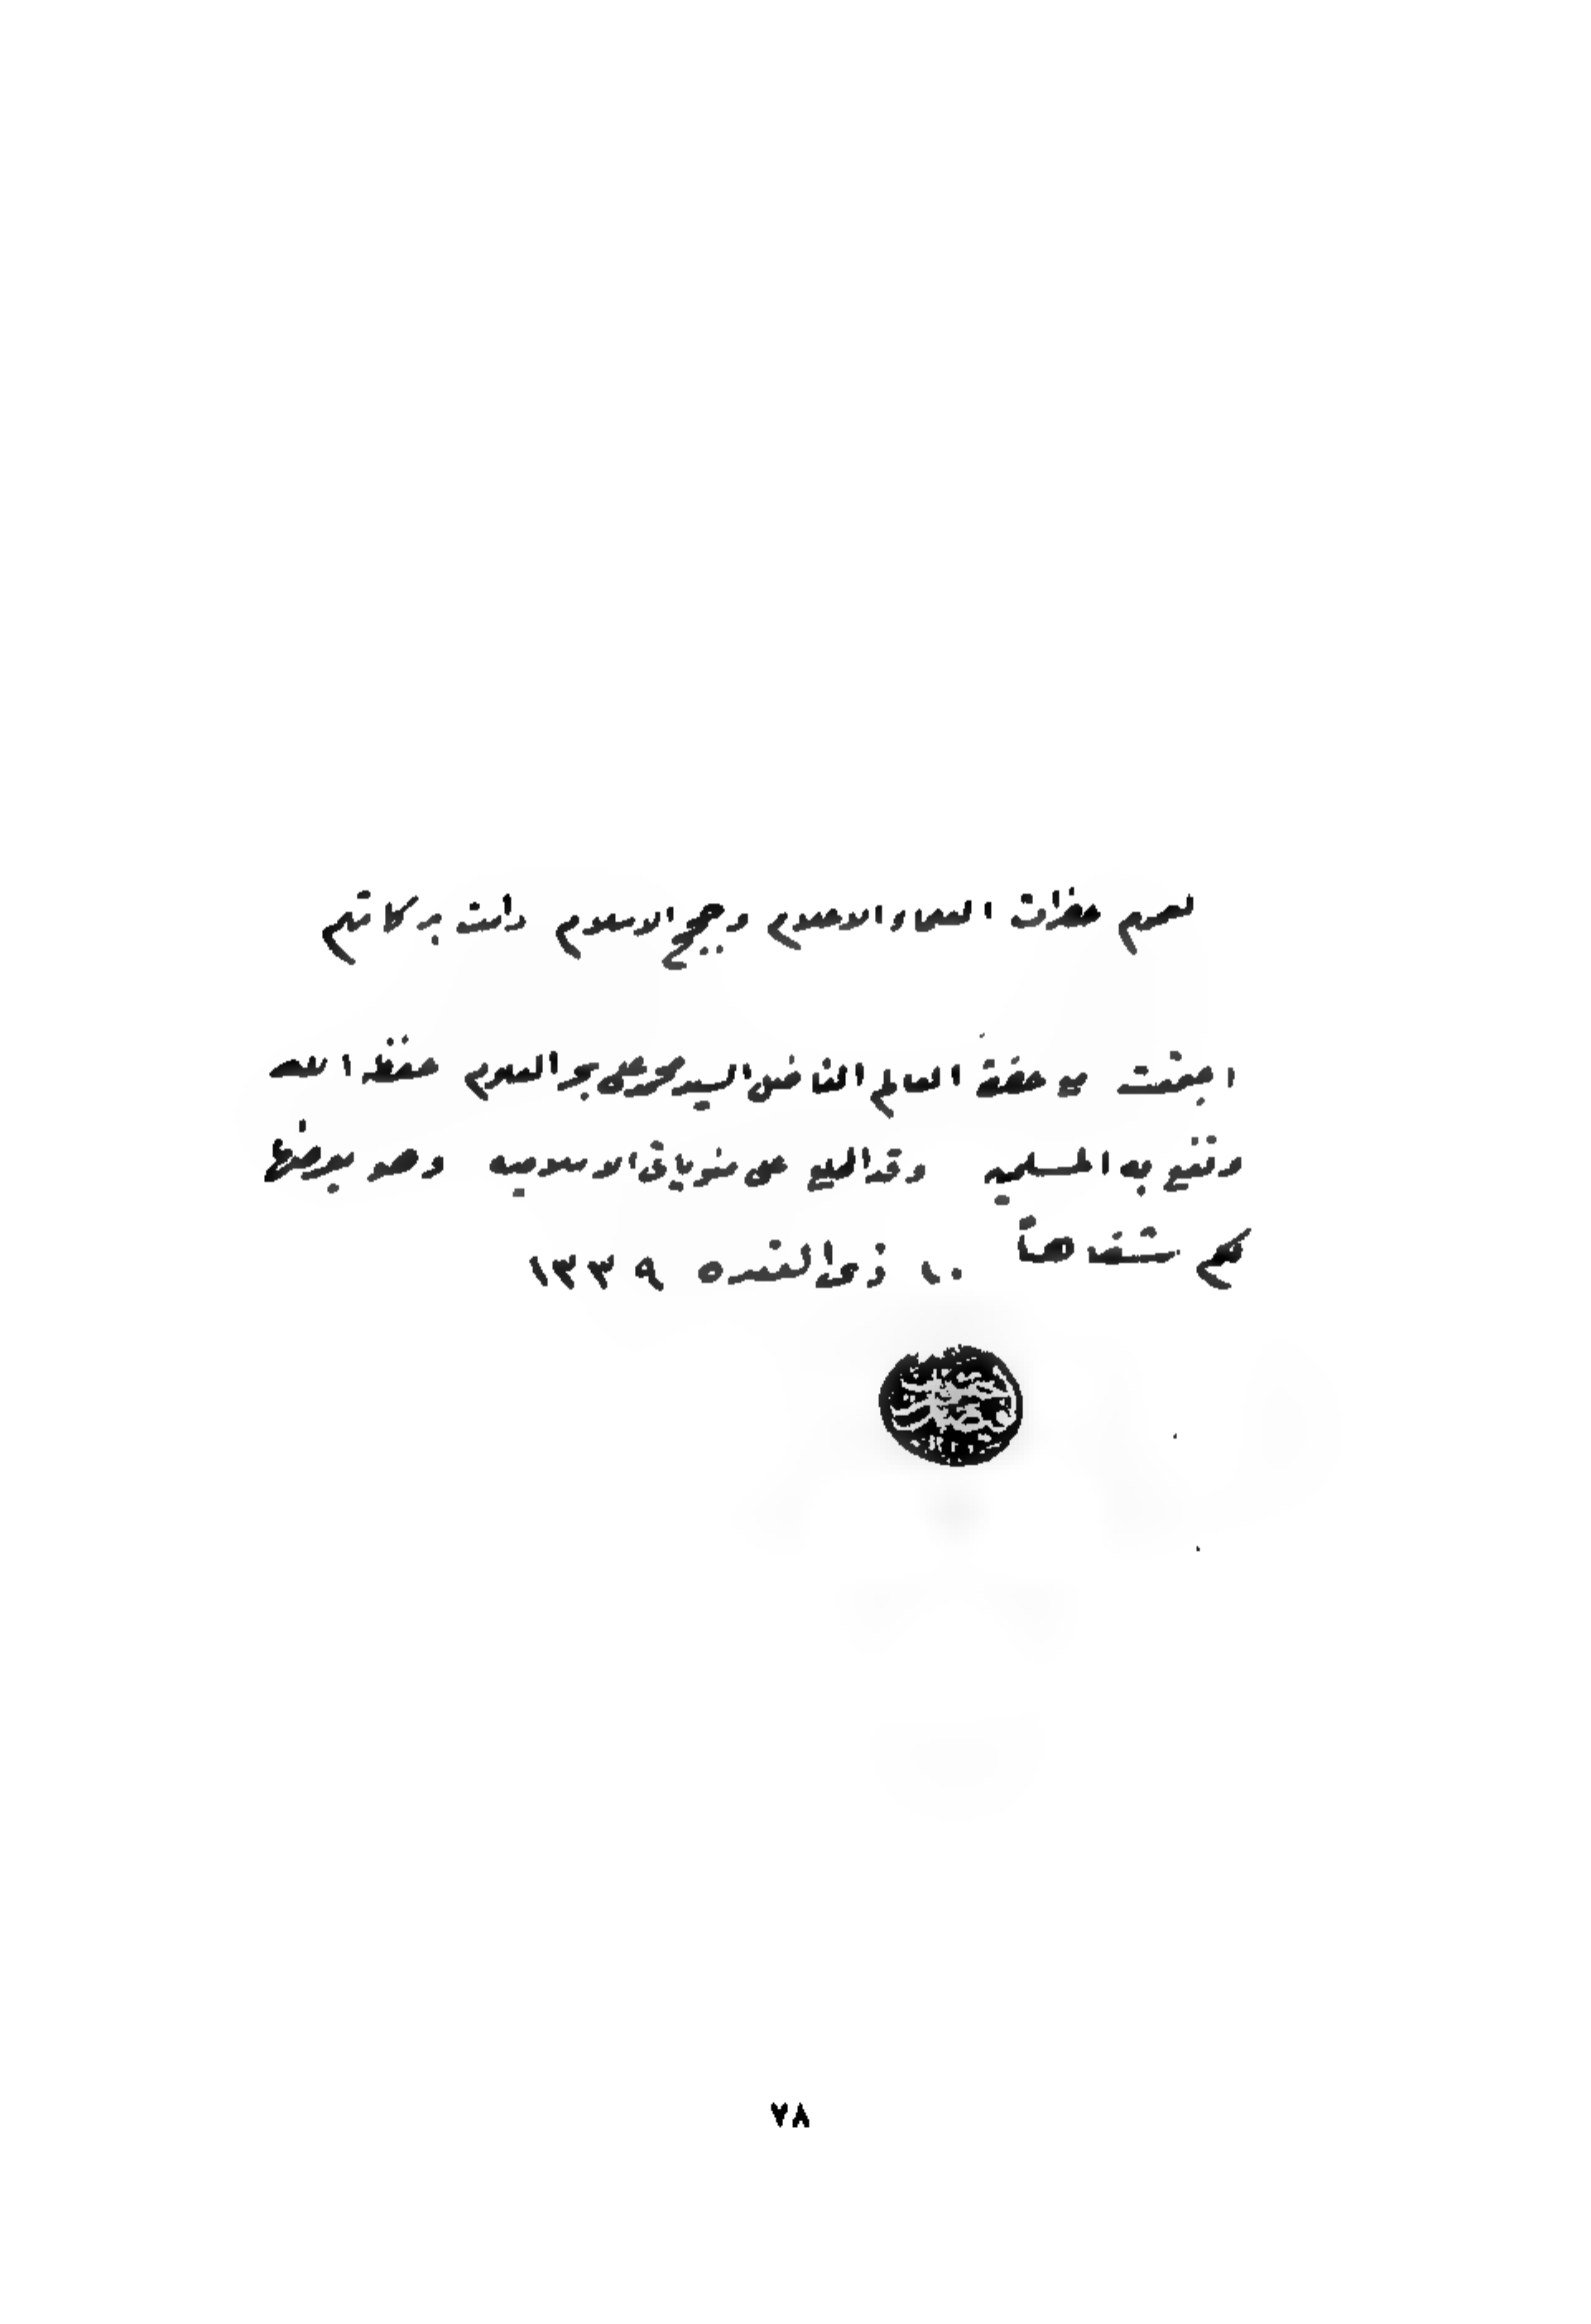 لعموم حضرات العلماء الاعلام وحجج الاسلام دامت بركاتهم
اجتمعت مع حضرة العالم الفاضل السيد محمد علي بحر العلوم حفظه الله
ونفع به المسلمين وقد اطلع على منوياتي الاسلامية وهو سيعرضها
لكم شفاهاً ١٠ ذي القعده ١٣٣٩
٧٨